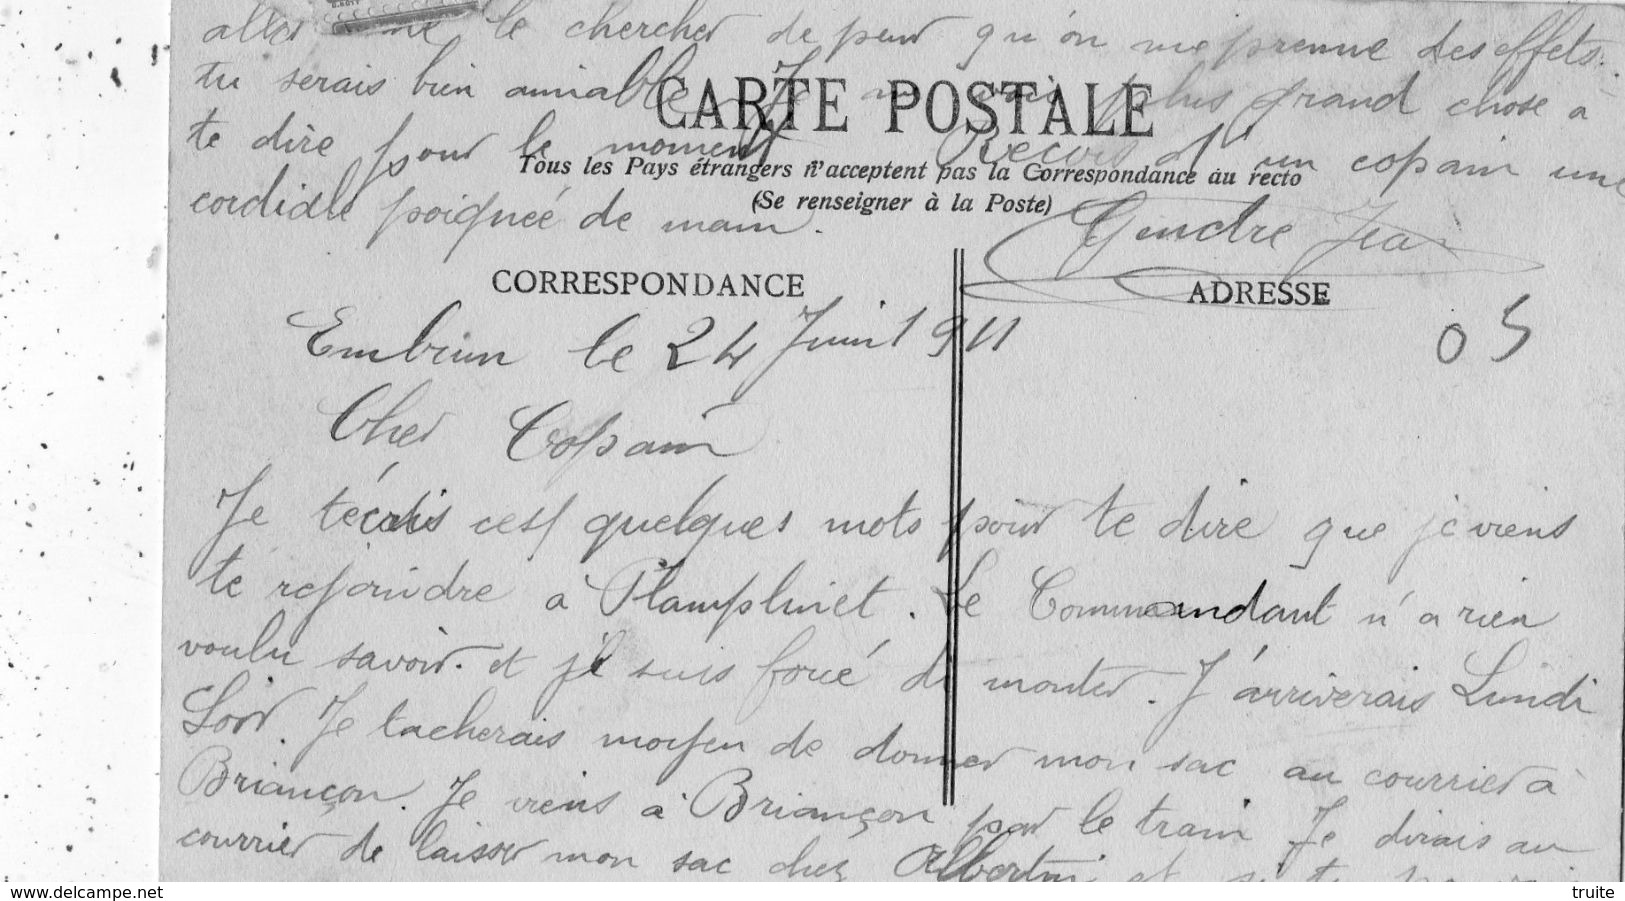 aller me le chercher de peur qu'on me prenne des effets.
tu serais bien aimable Je ne vois plus grand chose à
CARTE POSTALE
te dire pour le moment Recois d'un copain une
Tous les Pays étrangers n'acceptent pas la Correspondance au recto
(Se renseigner à la Poste)
cordialle poignéé de main.
Gindre Jean
CORRESPONDANCE
ADRESSE
Embrun le 24 Juin 1911
05
Cher Copain
Je técris ces quelques mots pour te dire que je viens
te rejoindre a Plampliniet. Le Commandant n'a rien
voulu savoir. et je suis forcé de monter. J'arriverais Lundi
Soir. Je tacherais moyen de donner mon sac au courrier à
Briançon. Je viens à Briançon par le train Je dirais au
courrier de laisser mon sac chez Albertin et si tu
delcampe.net
truite